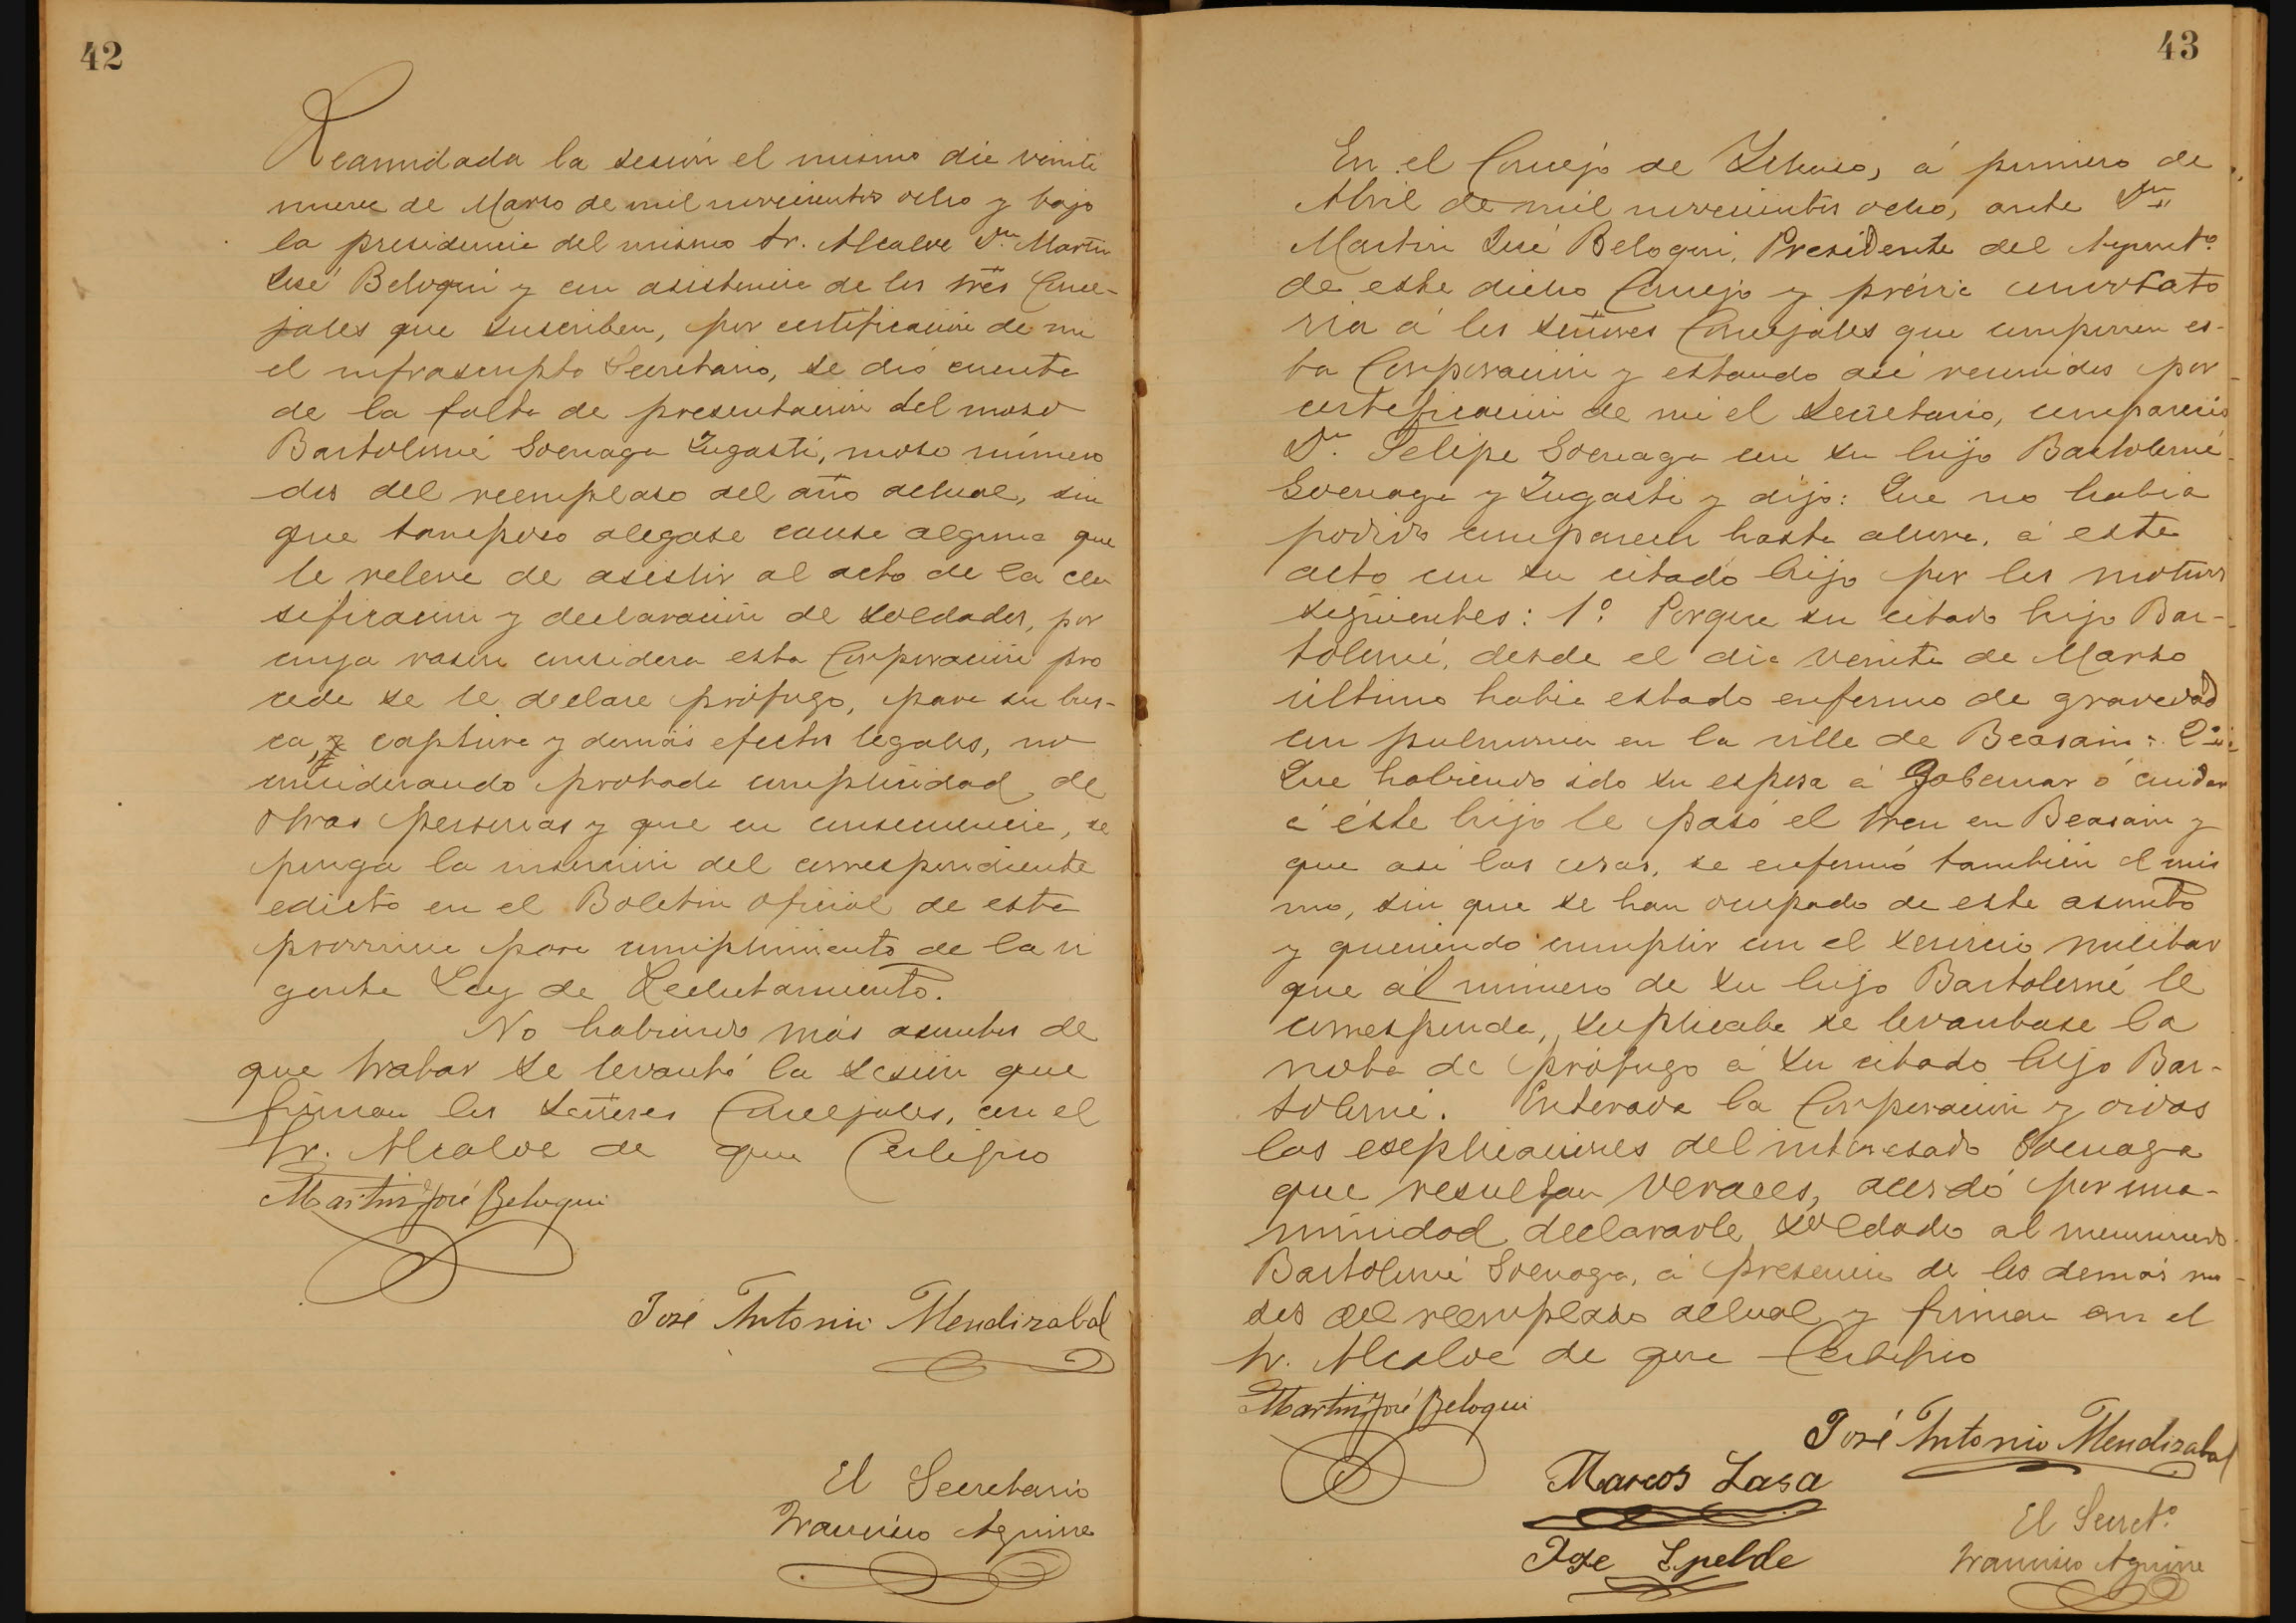 42
Reanudada la sesión el mismo dia veinti
nueve de Marzo de mil novecientos ocho y bajo
la presidencia del mismo Sr. Alcalde Dn. Martin
José Beloqui y con asistencia de los tres Conce-
jales que suscriben, por certificación de mi
el infrascripto Secretario, se dió cuenta
de la falta de presentación del mozo
Bartolomé Goenaga Zugasti, mozo número
dos del reemplazo del año actual, sin
que tampoco alegase causa alguna que
le releve de asistir al acto de la cla
sificación y declaración de soldados, por
cuya razon considera esta Corporación pro
cede se le declare prófugo, para su bus-
ca, captura y demás efectos legales, no
considerando probada complicidad de
otras personas y que en consecuencia, se
ponga la inserción del correspondiente
edicto en el Boletin oficial de esta
provincia para cumplimiento de la vi
gente Ley de Reclutamiento.
No habiendo más asuntos de
que tratar se levantó la sesión que
firman los señores Concejales, con el
Sr. Alcalde de que Certifico
Martin José Beloqui
José Antonio Mendizabal
El Secretario
Francisco Aguirre
43
En el Concejo de, á primero de
Abril de mil novecientos ocho, ante Dn.
Martin José Beloqui, Presidente del Ayuntº.
de este dicho Concejo y prévia convocato
ria á los señores Concejales que componen es-
ta Corporación y estando asi reunidos por
certificación de mi el Secretario, compareció
Dn. Felipe Goenaga con su hijo Bartolomé
Goenaga y Zugasti y dijo: Que no habia
podido comparecer hasta ahora, á este
acto con su citado hijo por los motivos
siguientes: 1º. Porque su citado hijo Bar-
tolomé, desde el dia veinte de Marzo
último habia estado enfermo de gravedad
con pulmonia en la villa de Beasain: 2º.
Que habiendo ido su esposa á gobernar ó cuidar
á éste hijo le pasó el tren en Beasain y
que asi las cosas, se enfermó también el mis
mo, sin que se han ocupado de este asunto
y queriendo cumplir con el servicio militar
que al número de su hijo Bartolomé le
corresponda, suplicaba se levantase la
nota de prófugo á su citado hijo Bar-
tolomé. Enterada la Corporación y oidas
las eseplicaciones del interesado Goenaga
que resultan veraces, acordó por una-
nimidad declararle soldado al mencionado
Bartolomé Goenaga, á presencia de los demás mo
sos del reemplazo actual y firman con el
Sr. Alcalde de que Certifico
Martin José Beloqui
José Antonio Mendizabal
Marcos Lasa
José Ypelde
El Secretº.
Francisco Aguirre